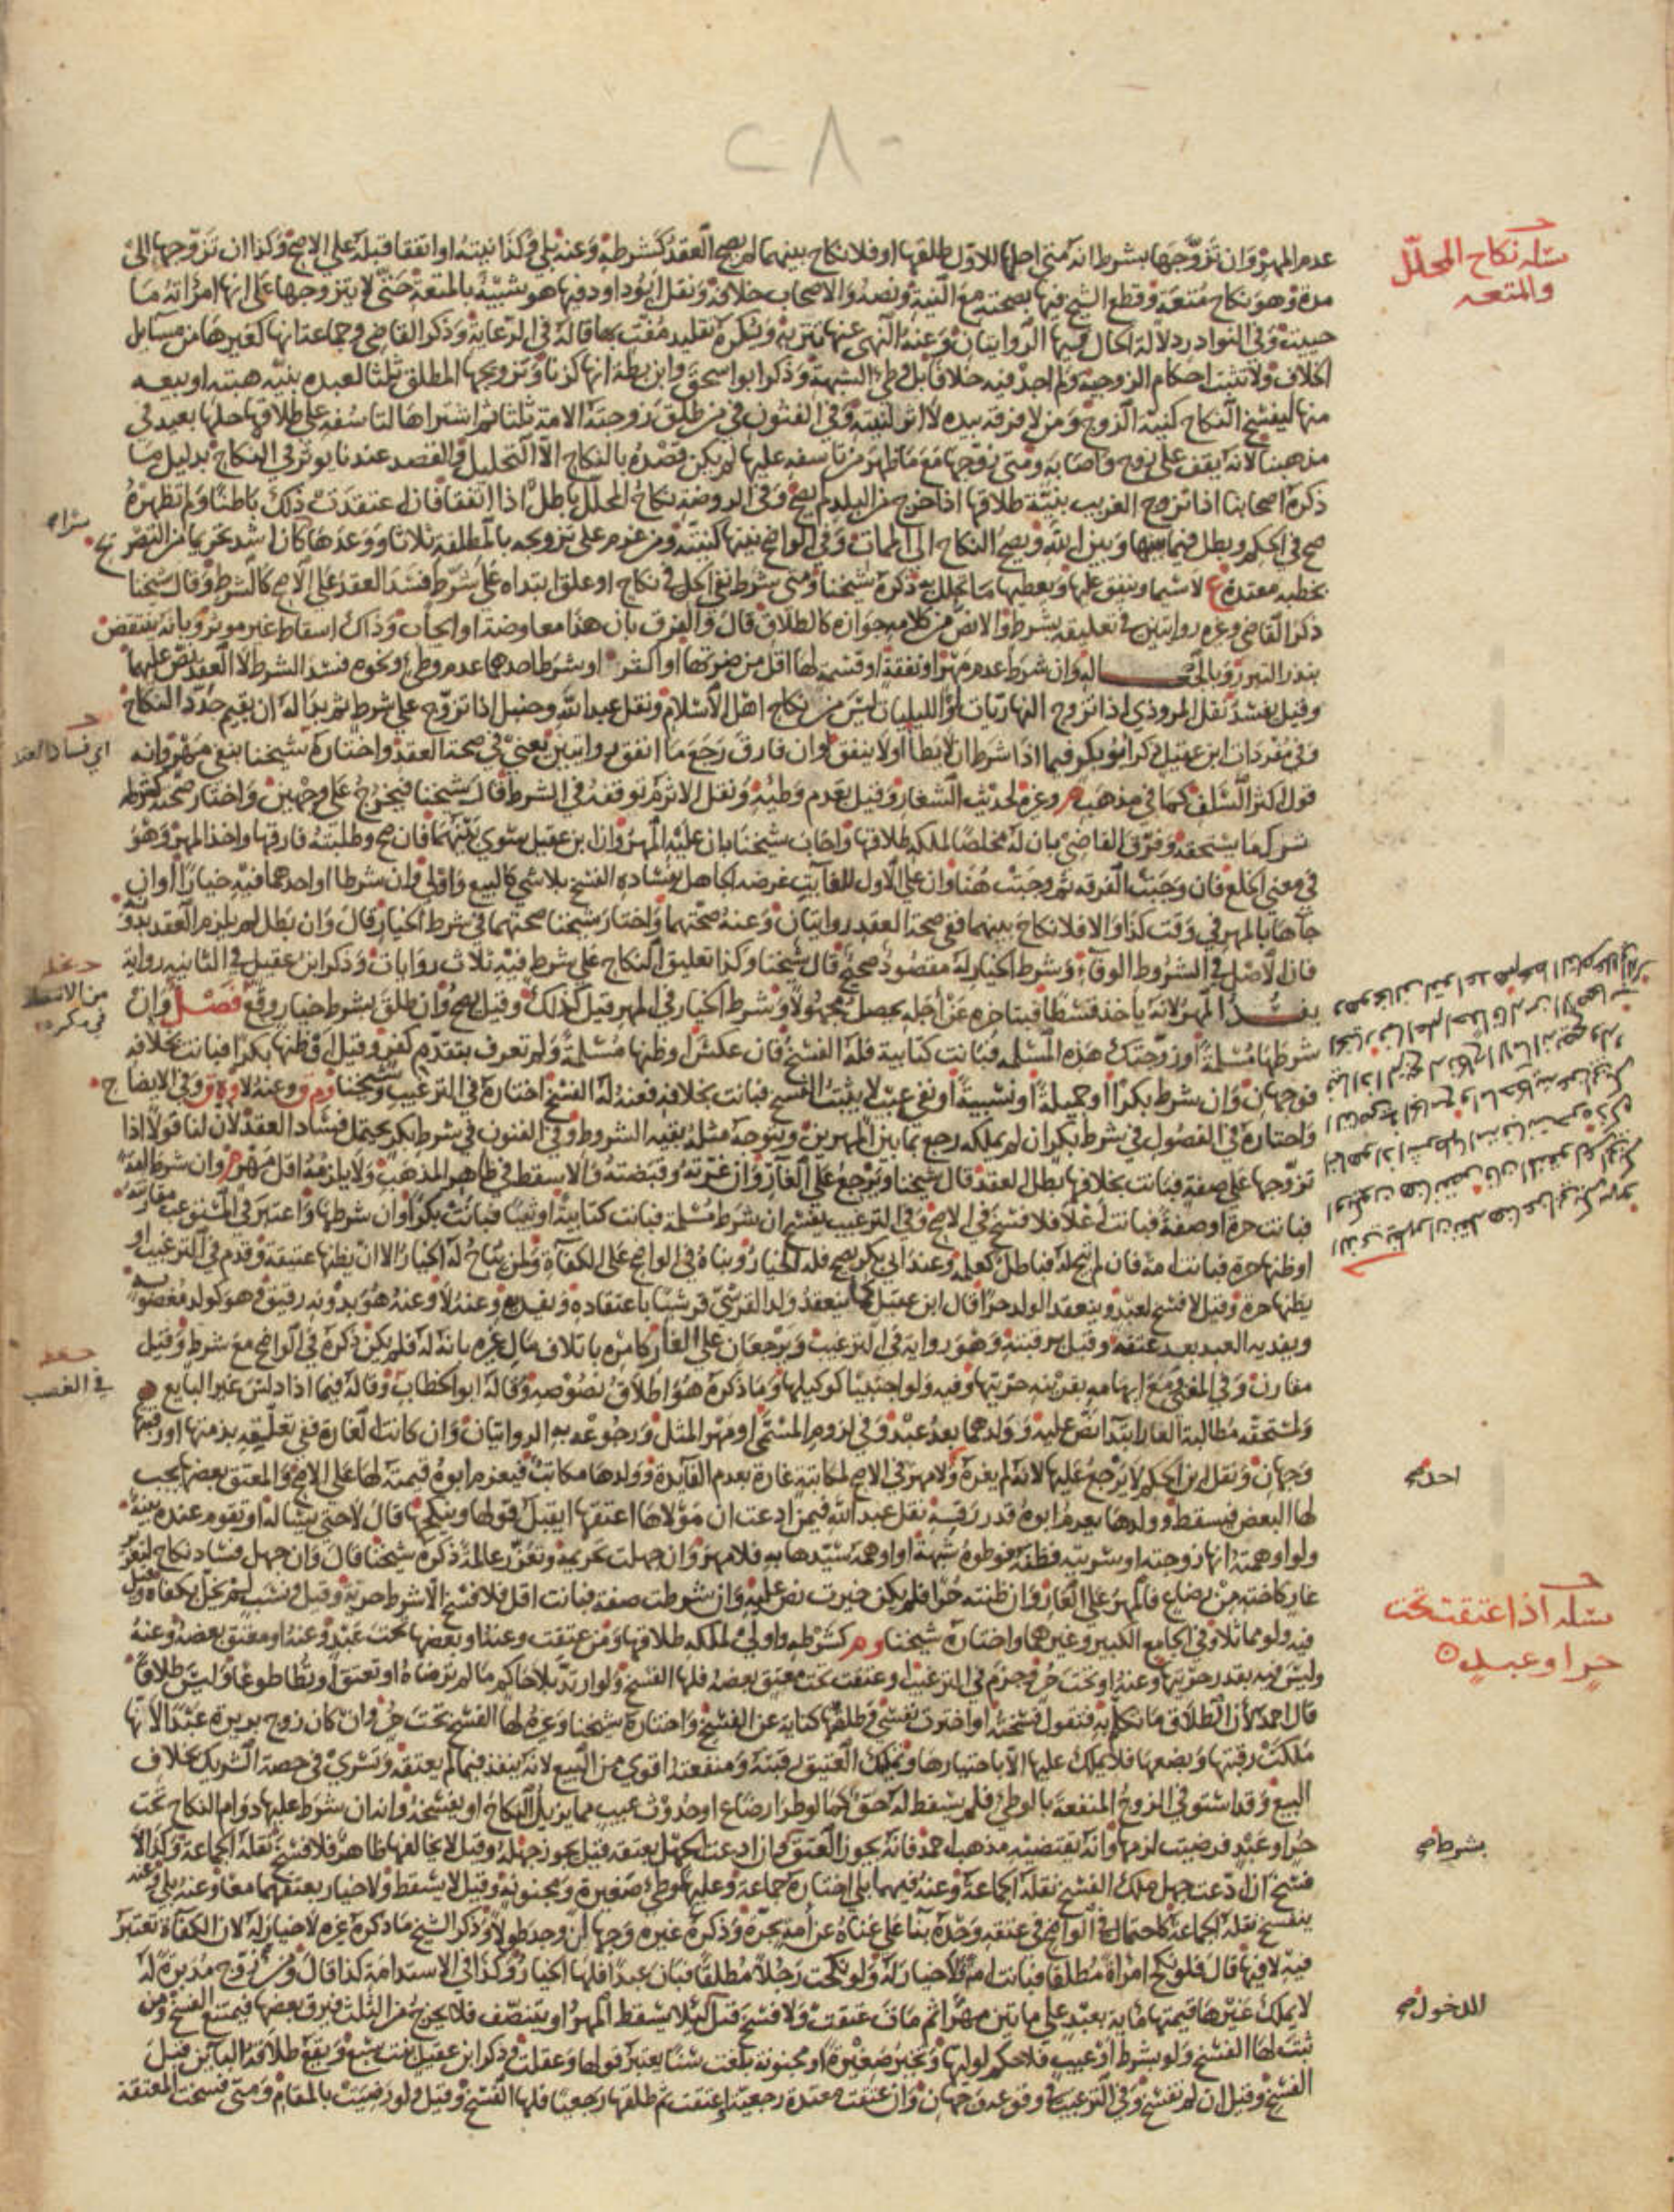 ٢٨٠
مسئلة نكاح المحلل
والمتعه
عدم المهر وان تزوجها بشرط انه متى احلها للاول طلقها او فلا نكاح بينهما لم يصح العقد كشرطه وعنه بلى وكذا نيته او اتفقا قبله على الاصح وكذا ان تزوجها الى
مدة وهو نكاح متعة وقطع الشيخ فيها بصحته مع النية ونصه والاصحاب خلافه ونقل ابو داود فيها هو شبيه بالمتعة حتى لا يتزوجها على انها امراته ما
حييت وفي النوادر دلالة الحال فيها الروايتان وعنه النهي عنها تنزيه ويكره تقليد مفت بها قاله في الرعاية وذكر القاضي وجماعة انها كغيرها من مسايل
الخلاف ولا تثبت احكام الزوجية ولم اجد فيه خلافا بل وطئ الشبهة وذكر ابو اسحق وابن بطة انها كزنا وتزويجها المطلق ثلثا لعبده بنية هبته او بيعه
منها ليفسخ النكاح كنية الزوج ومن لا فرقة بيده لا اثر لنيته وفي الفنون في من طلق زوجته الامة ثلثا ثم اشتراها لتاسفه على طلاقها حلها بعيد في
مذهبنا لانه يقف على زوج واصابة ومتى زوجها مع ما ظهر من تاسفه عليها لم يكن قصده بالنكاح الا التحليل والقصد عندنا يؤثر في النكاح بدليل ما
ذكره اصحابنا اذا تزوج الغريب بنية طلاقها اذا خرج من البلد لم يصح وفي الروضة نكاح المحلل باطل اذا اتفقا فان اعتقدت ذلك باطنا ولم تظهره
صح في الحكم وبطل فيما بينها وبين الله ويصح النكاح الى الممات وفي الواضح نيتها كنيته ومن عزم على تزويجه بالمطلقة ثلاثا ووعدها كان اشد تحريما من التصريح
بخطبة معتدة ع لا سيما وينفق عليها ويعطيها ما تحلل به ذكره شيخنا ومتى شرط نفي الحل في نكاح او علق ابتداه على شرط فسد العقد على الاصح كالشرط وقال شيخنا
ذكر القاضي وغيره روايتين في تعليقه بشرط والانص من كلامه جوازه كالطلاق قال والفرق بان هذا معاوضة او ايجاب وذاك اسقاط غير موثر وبانه ينتقض
بنذر التبرر وبالجعالة وان شرط عدم مهر او نفقة او قسمة لها اقل من ضرتها او اكثر او شرط احدهما عدم وطئ ونحوه فسد الشرط لا العقد نص عليهما
وقيل يفسد نقل المروذي اذا تزوج النهاريات او الليليات ليس من نكاح اهل الاسلام ونقل عبد الله وحنبل اذا تزوج على شرط ثم بدا له ان يقيم جدد النكاح
وفي مفردات ابن عقيل ذكر ابو بكر فيما اذا شرط ان لا يطأ او لا ينفق او ان فارق رجع ما انفق روايتين يعني في صحة العقد واختاره شيخنا بنفي مهر وانه
قول اكثر السلف كما في مذهب م وغيره لحديث الشغار وقيل بعدم وطئه ونقل الاثرم توقفه في الشرط قال شيخنا فيخرج على وجهين واختار صحته كشرطه
ترك ما يستحقه وفرق القاضي بان له مخلصا لملكه طلاقها واجاب شيخنا بان عليه المهر وان ابن عقيل سوى بينهما فان صح وطلبته فارقها واخذ المهر وهو
في معنى الخلع فان وجبت الفرقة ثم وجبت هنا وان على الاول للفايت غرضه الجاهل بفساده الفسخ بلا شي كالبيع واولى وان شرطا او احدهما فيه خيارا او ان
جاها بالمهر في وقت كذا والا فلا نكاح بينهما ففي صحة العقد روايتان وعنه صحتهما واختار شيخنا صحتهما في شرط الخيار قال وان بطل لم يلزم العقد بدونه
فان الاصل في الشروط الوفاء وشرط الخيار له مقصود صحيح قال شيخنا وكذا تعليق النكاح على شرط فيه ثلاث روايات وذكر ابن عقيل في الثانية رواية
يفسد المهر لانه ياخذ قسطا فبتاخره عن اجله يحصل مجهولا وشرط الخيار في المهر قيل كذلك وقيل يصح وان طلق بشرط خيار وقع فصل وان
شرطها مسلمة او زوجتك هذه المسلمة فبانت كتابية فله الفسخ فان عكس او ظنها مسلمة ولم تعرف بتقدم كفر وقيل او ظنها بكرا فبانت بخلافه
فوجهان وان شرط بكرا او جميلة او نسيبة او نفي عيب لا يثبت الفسخ فبانت بخلافه فعنه له الفسخ اختاره في الترغيب وشيخنا وم ق وعنه لا وه ق وفي الايضاح
واختاره في الفصول في شرط بكر ان لم يملكه رجع بما بين المهرين ويتوجه مثله بقية الشروط وفي الفنون في شرط بكر يحتمل فساد العقد لان لنا قولا اذا
تزوجها على صفة فبانت بخلافها بطل العقد قال شيخنا ويرجع على الغار وان غرته وقبضته والا سقط في ظاهر المذهب ولا يلزمه اقل مهر م وان شرط امة
فبانت حرة او صفة فبانت اعلا فلا فسخ في الاصح وفي الترغيب يفسخ ان شرط مسلمة فبانت كتابية او ثيبا فبانت بكرا وان شرطها واعتبر في المستوعب مقارنته
او ظنها حرة فبانت امة فان لم تبح له فباطل كعلمه وعند ابي بكر يصح فله الخيار وبناه في الواضح على الكفاءة ولمن تباح له الخيار الا ان يظنها عتيقة وقدم في الترغيب او
يظنها حرة وقيل لا فسخ لعبد وينعقد الولد حرا قال ابن عقيل كما ينعقد ولد القرشي قرشيا باعتقاده ويفديه وعنه لا وعنه هو بدونه رقيق فهو كولد مغصوب
ويفديه العبد بعد عتقه وقيل برقبته وهو رواية في الترغيب ويرجعان على الغار كامره باتلاف مال غيره بانه له فلم يكن ذكره في الواضح مع شرط وقيل
مقارن وفي المغني ومع ابهامه بقرينة حريتها وفيه ولو اجنبيا كوكيلها وما ذكره هو اطلاق نصوصه وقاله ابو الخطاب وقاله فيما اذا دلس غير البايع
ولمستحقه مطالبة الغار ابتداء نص عليه وولدهما بعد عبد وفي لزوم المسمى او مهر المثل ورجوعه به الروايتان وان كانت الغارة ففي تعلقه بذمتها او رقبتها
وجهان ونقل ابن الحكم لا يرجع عليها لانه لم يغره ولا مهر في الاصح لمكاتبة غارة بعدم الفايدة وولدها مكاتب فيغرم ابوه قيمته لها على الاصح والمعتق بعضها يجب
لها البعض فيسقط وولدها يغرم ابوه قدر رقه نقل عبد الله فيمن ادعت ان مولاها اعتقها ايقبل قولها وينكحها قال لا حتى يسال او تقوم عنده بينة
ولو اوهمته انها زوجته او سريته فظنه فوطئ شبهة او اوهمه سيدها به فلا مهر وان جهلت تحريمه وتعزر عالمة ذكره شيخنا قال وان جهل فساد نكاح لتغرير
غار كاخته من رضاع فالمهر على الغار وان ظنته حرا فلم يكن خيرت نص عليه وان شرطت صفة فبانت اقل فلا فسخ الا شرط حرية وقيل ونسب لم يخل بكفاءة وقيل
فيه ولو مماثلا وفي الجامع الكبير وغيرهما واختاره شيخنا وم كشرطه واولى لملكه طلاقها ومن عتقت وعنه او بعضها تحت عبد وعنه او معتق بعضه وعنه
وليس فيه بقدر حريتها وعنه او تحت حر وجزم في الترغيب او عتقت تحت معتق بعضه فلها الفسخ ولو ارتد بلا حاكم ما لم ترضاه او تعتق او توطأ طوعا وليس طلاقا
قال احمد لان الطلاق ما تكلم به فتقول فسخته او اخترت نفسي وطلقتها كناية عن الفسخ واختار شيخنا وغيره لها الفسخ تحت حر وان كان زوج بريرة عبدا لانها
ملكت رقبتها وبضعها فلا يملك عليها الا باختيارها وتملك العتيق رقبته ومنفعته اقوى من البيع لانه ينفذ فيما لم يعتقه ويسري في حصة الشريك بخلاف
البيع وقد استوفي الزوج المنفعة بالوطئ فلم يسقط له حق كما لو طرا رضاع او حدوث عيب مما يزيل النكاح او يفسخه وانه ان شرط عليها دوام النكاح تحت
حر او عبد فرضيت لزمها وانه يقتضيه مذهب احمد فانه يجوز العتق وان ادعت الجهل بعتقه قيل يجوز جهله وقيل لا يخالفها ظاهر فلا فسخ نقله الجماعة وكذا لا
فسخ ان ادعت جهل ملك الفسخ نقله الجماعة وعنه فيهما بلى اختاره جماعة وعليها وطئ صغيرة ومجنونة وقيل لا يسقط ولا خيار بعتقهما معا وعنه بلى وعنه
ينفسخ نقله الجماعة كاحتمال في الواضح في عتقه وحده بناء على غناه عن امة بحرة وذكره غيره وجها ان وجد طولا وذكر الشيخ ما ذكره غيره لا خيار له لان الكفاءة تعتبر
فيه لا فيها قال فلو نكح امراة مطلقا فبانت امة فلا خيار له ولو نكحت رجلا مطلقا فبان عبدا فلها الخيار وكذا في الاستدامة كذا قال ومن زوج مدبرة له
لا يملك غيرها قيمتها ماية بعبد على مايتين مهرا ثم مات عتقت ولا فسخ قبل الدخول لئلا يسقط المهر او يتنصف فلا يخرج من الثلث فيرق بعضها فيمتنع الفسخ ومن
ثبت لها الفسخ ولو بشرط او عيب فلا حكم لوليها وتخير صغيرة او مجنونة بلغت سنا يعتبر قولها وعقلت وذكر ابن عقيل بنت تسع ويقع طلاقه الباين قبل
الفسخ وقيل ان لم تفسخ وفي الترغيب في وقوعه وجهان وان عتقت معتدة رجعية او عتقت ثم طلقها رجعيا فلها الفسخ وقيل ولو رضيت بالمقام ومتى فسخت المعتقة
اي فساد العقد
في الغصب
مسئلة اذا عتقت تحت
حر او عبد
بشرط صح
الدخول صح